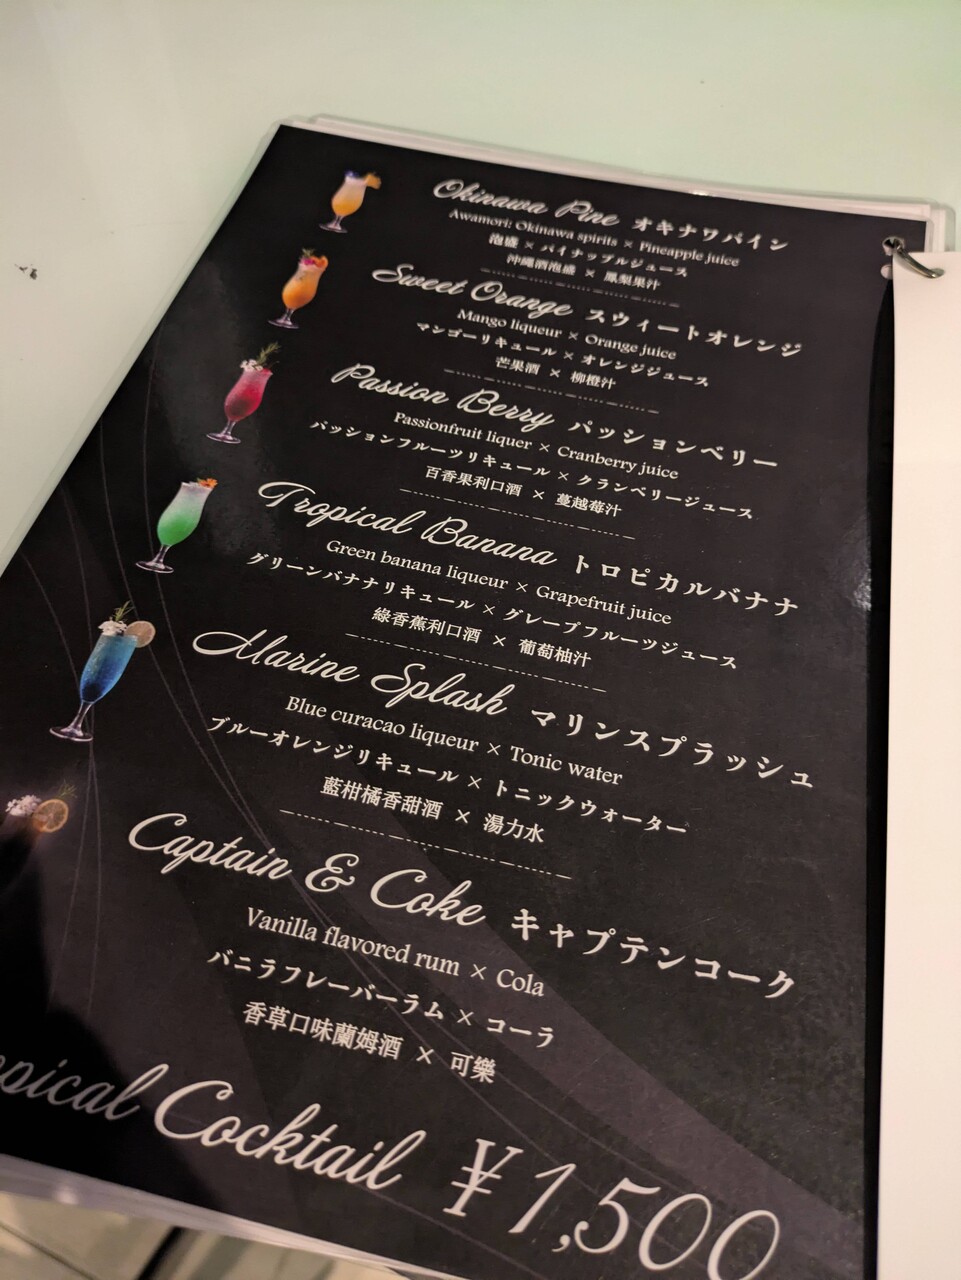 Okinawa Pine オキナワパイン
Awamori: Okinawa spirits × Pineapple juice
泡盛 × パイナップルジュース
沖縄酒泡盛 × 鳳梨果汁
Sweet Orange スウィートオレンジ
Mango liqueur × Orange juice
マンゴーリキュール × オレンジジュース
芒果酒 × 柳橙汁
Passion Berry パッションベリー
Passionfruit liquer × Cranberry juice
パッションフルーツリキュール × クランベリージュース
百香果利口酒 × 蔓越莓汁
Tropical Banana トロピカルバナナ
Green banana liqueur × Grapefruit juice
グリーンバナナリキュール × グレープフルーツジュース
綠香蕉利口酒 × 葡萄柚汁
Marine Splash マリンスプラッシュ
Blue curacao liqueur × Tonic water
ブルーオレンジリキュール × トニックウォーター
藍柑橘香甜酒 × 湯力水
Captain & Coke キャプテンコーク
Vanilla flavored rum × Cola
バニラフレーバーラム × コーラ
香草口味蘭姆酒 × 可樂
pical Cocktail ¥1,500